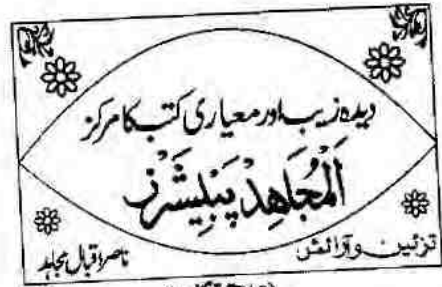 دیدہ زیب اور معیاری کتب کا مرکز
اَلْمُجَاھِدْ پَبلِیشَرز
تزئین و آرائش
ناصر اقبال مجاہد